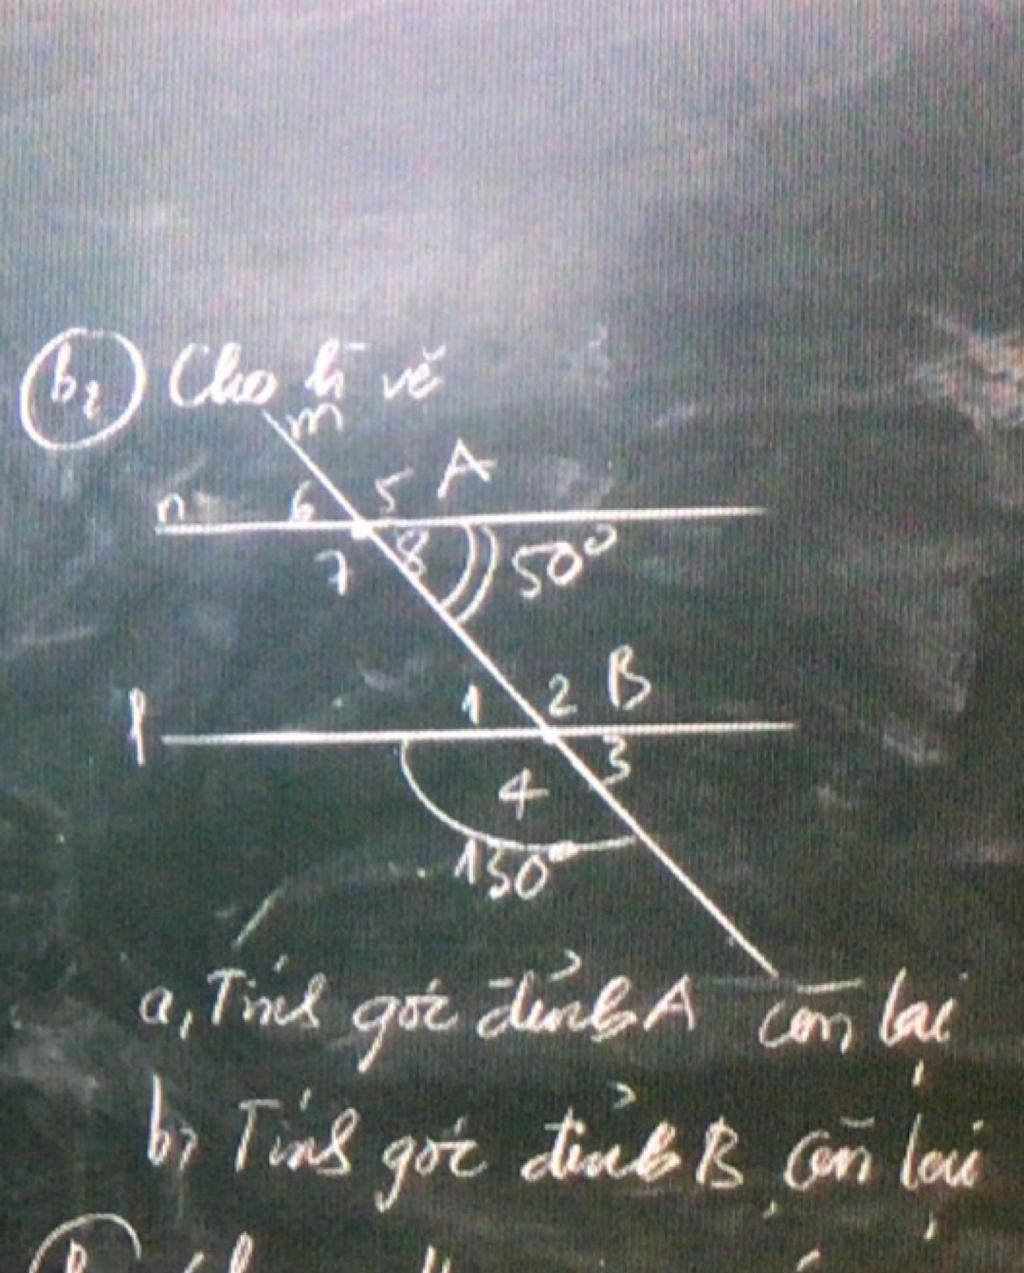 b2 Cho h vẽ
m
n 6 5 A
7 8 50°
1 2 B
4 3
130°
a, Tính góc đỉnh A còn lại
b, Tính góc đỉnh B còn lại